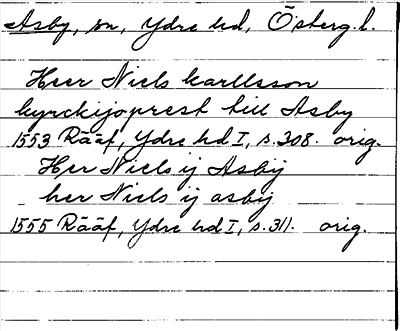 Asby, sn, Ydre hd, Österg.l.
Heer Niels karllsson
kyrckijoprest till Asby
1553 Rääf, Ydre hd I, s. 308. orig.
Her Niels ij Asbÿ
her Niels ij asbÿ
1555 Rääf, Ydre hd I, s. 311. orig.